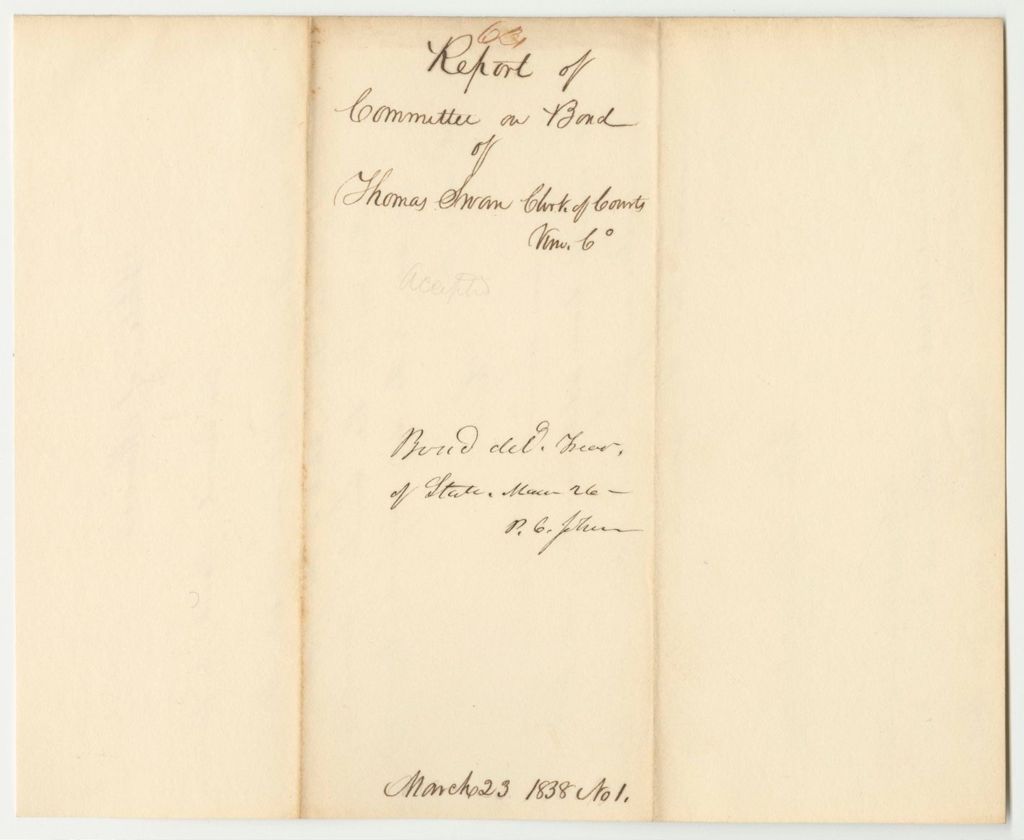 63
Report of
Committee on Bond
of
Thomas Swan Clerk of Courts
Ken. Co
Accepted
Bond deld. Trear.
of State. Mar 26 —
P. C. John
March 23 1838 No 1.